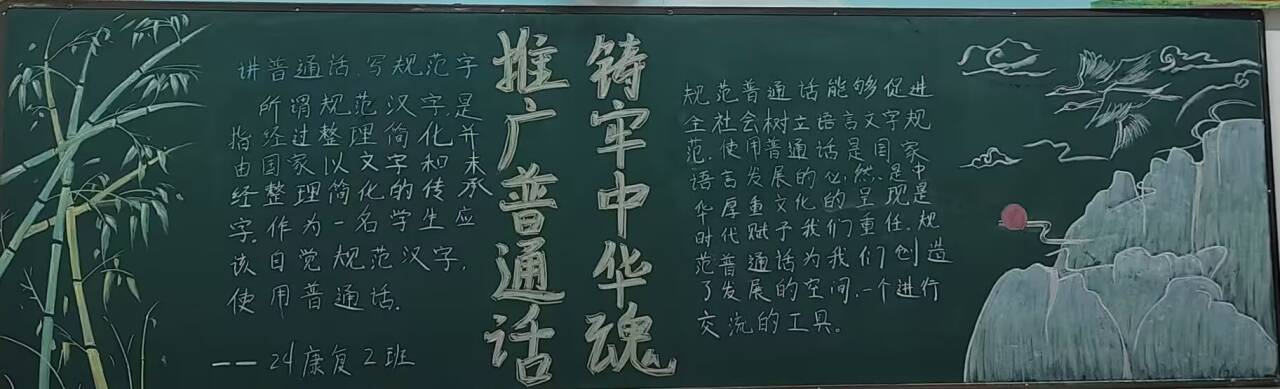 讲普通话、写规范字
所谓规范汉字,是
指经过整理简化并
由国家以文字和未
经整理简化的传承
字。作为一名学生应
该自觉规范汉字,
使用普通话.
——24康复2班
推广普通话
铸牢中华魂
规范普通话能够促进
全社会树立语言文字规
范.使用普通话是国家
语言发展的必然.是中
华厚重文化的呈现是
时代赋予我们重任.规
范普通话为我们创造
了发展的空间.一个进行
交流的工具。